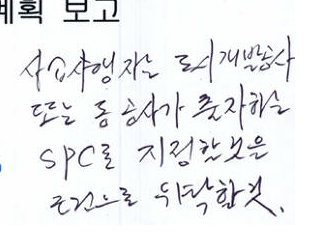 계획 보고
사업시행자는 도시개발공사
또는 동 공사가 출자하는
SPC로 지정한 것은
조건으로 위탁할 것.